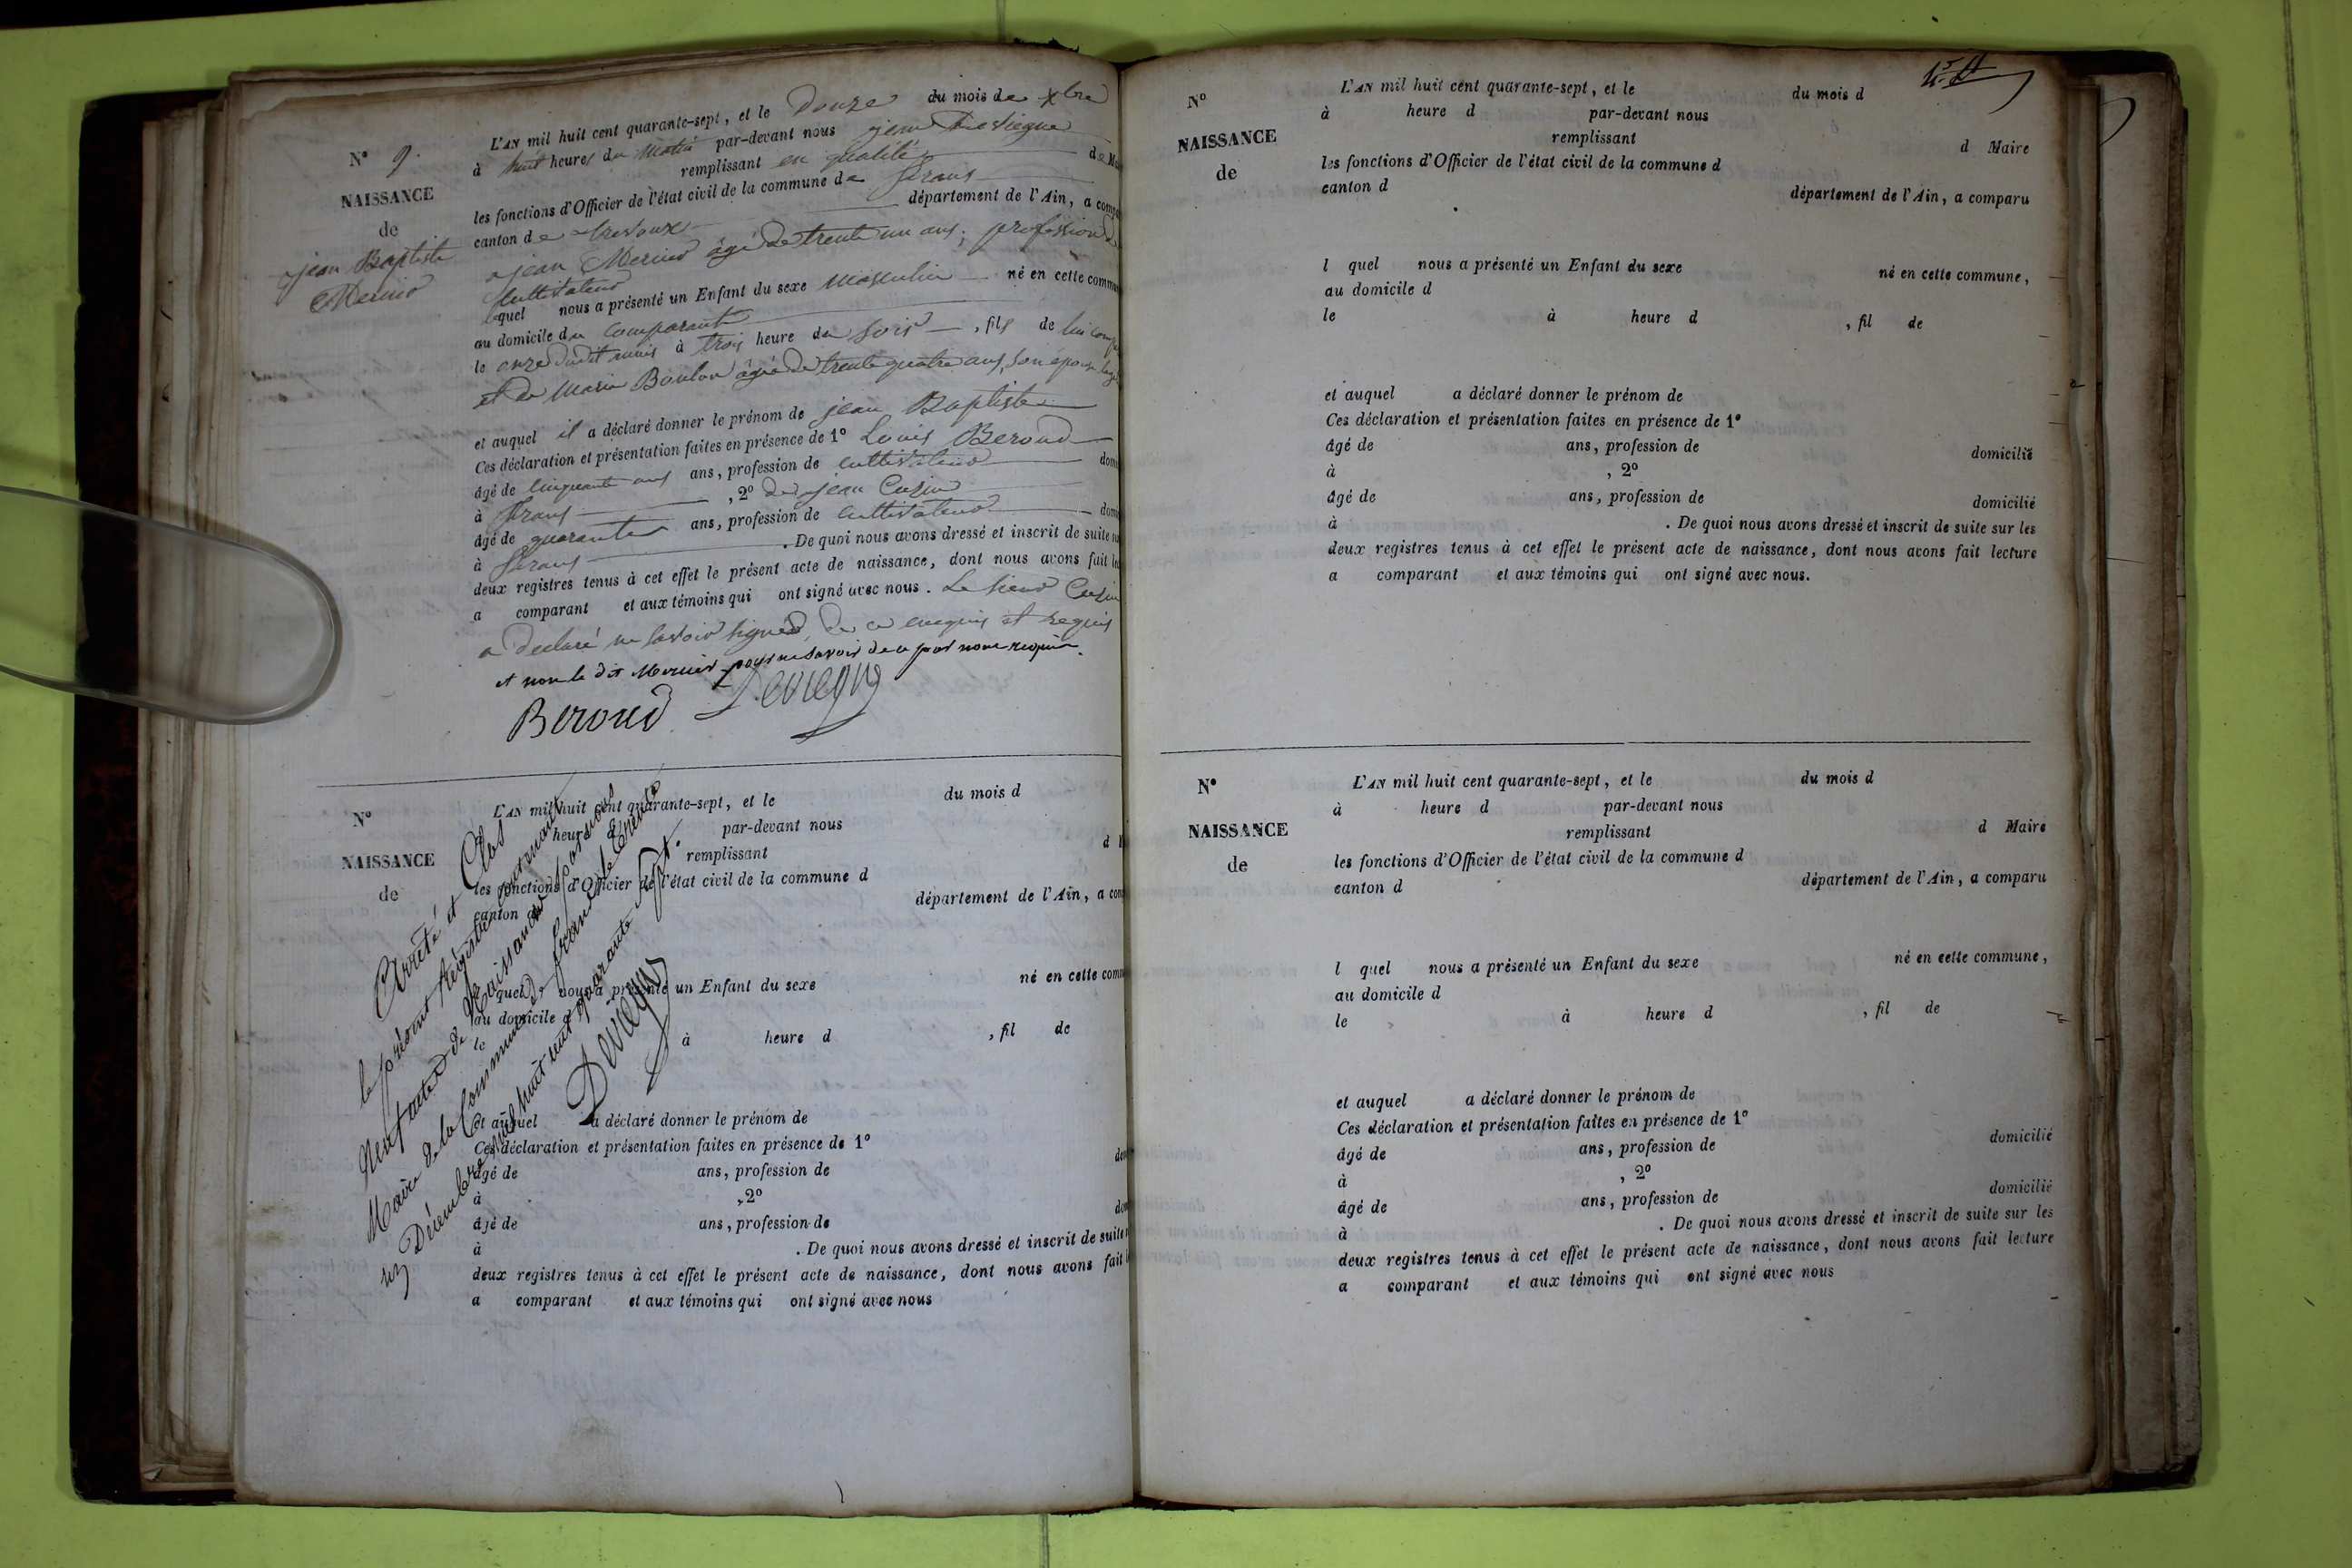 N° 9.
NAISSANCE
de
jean Baptiste
Mercier
L'AN mil huit cent quarante-sept, et le Douze du mois de Xbre
à huit heures du Matin par-devant nous jean
remplissant en qualité de
les fonctions d'Officier de l'état civil de la commune de frans
canton de trevoux département de l'Ain, a
jean Mercier âgé de trente un ans, profession
Cultivateur
lequel nous a présenté un Enfant du sexe masculin né en cette
au domicile du comparant
le onze dudit mois à trois heure du soir, fils de lui
et de Marie Boulon âgée de trente quatre ans, son epouse
et auquel il a déclaré donner le prénom de jean Baptiste
Ces déclaration et présentation faites en présence de 1° Louis Beroud
âgé de Cinquante ans ans, profession de Cultivateur
à frans, 2° de jean Cuzin
âgé de quarante ans, profession de Cultivateur
à frans. De quoi nous avons dressé et inscrit de suite
deux registres tenus à cet effet le présent acte de naissance, dont nous avons fait
a comparant et aux témoins qui ont signé avec nous. Le sieur Cuzin
a declaré ne savoir signer, de ce enquis et requis
et non le dit Mercier pour ne savoir de ce par nous requis.
Beroud
N°
NAISSANCE
de
L'AN mil huit cent quarante-sept, et le du mois d
heure d par-devant nous
remplissant d
les fonctions d'Officier de l'état civil de la commune d
canton d département de l'Ain, a
quel nous a présenté un Enfant du sexe né en cette
au domicile d
le à heure d , fil de
et auquel a déclaré donner le prénom de
Ces déclaration et présentation faites en présence de 1°
âgé de ans, profession de
à , 2°
âgé de ans, profession de
à . De quoi nous avons dressé et inscrit de suite
deux registres tenus à cet effet le présent acte de naissance, dont nous avons fait
a comparant et aux témoins qui ont signé avec nous
Arrêté et Clos
le présent Régistre contenant
Neuf actes de Naissance par nous
Maire de la Commune de frans le trente
un Décembre mil huit cent quarante sept.
N°
NAISSANCE
de
L'AN mil huit cent quarante-sept, et le du mois d
à heure d par-devant nous
remplissant d Maire
les fonctions d'Officier de l'état civil de la commune d
canton d département de l'Ain, a comparu
l quel nous a présenté un Enfant du sexe né en cette commune,
au domicile d
le à heure d , fil de
et auquel a déclaré donner le prénom de
Ces déclaration et présentation faites en présence de 1°
âgé de ans, profession de domicilié
à , 2°
âgé de ans, profession de domicilié
à . De quoi nous avons dressé et inscrit de suite sur les
deux registres tenus à cet effet le présent acte de naissance, dont nous avons fait lecture
a comparant et aux témoins qui ont signé avec nous.
N°
NAISSANCE
de
L'AN mil huit cent quarante-sept, et le du mois d
à heure d par-devant nous
remplissant d Maire
les fonctions d'Officier de l'état civil de la commune d
canton d département de l'Ain, a comparu
l quel nous a présenté un Enfant du sexe né en cette commune,
au domicile d
le à heure d , fil de
et auquel a déclaré donner le prénom de
Ces déclaration et présentation faites en présence de 1°
âgé de ans, profession de domicilié
à , 2°
âgé de ans, profession de domicilié
à . De quoi nous avons dressé et inscrit de suite sur les
deux registres tenus à cet effet le présent acte de naissance, dont nous avons fait lecture
a comparant et aux témoins qui ont signé avec nous